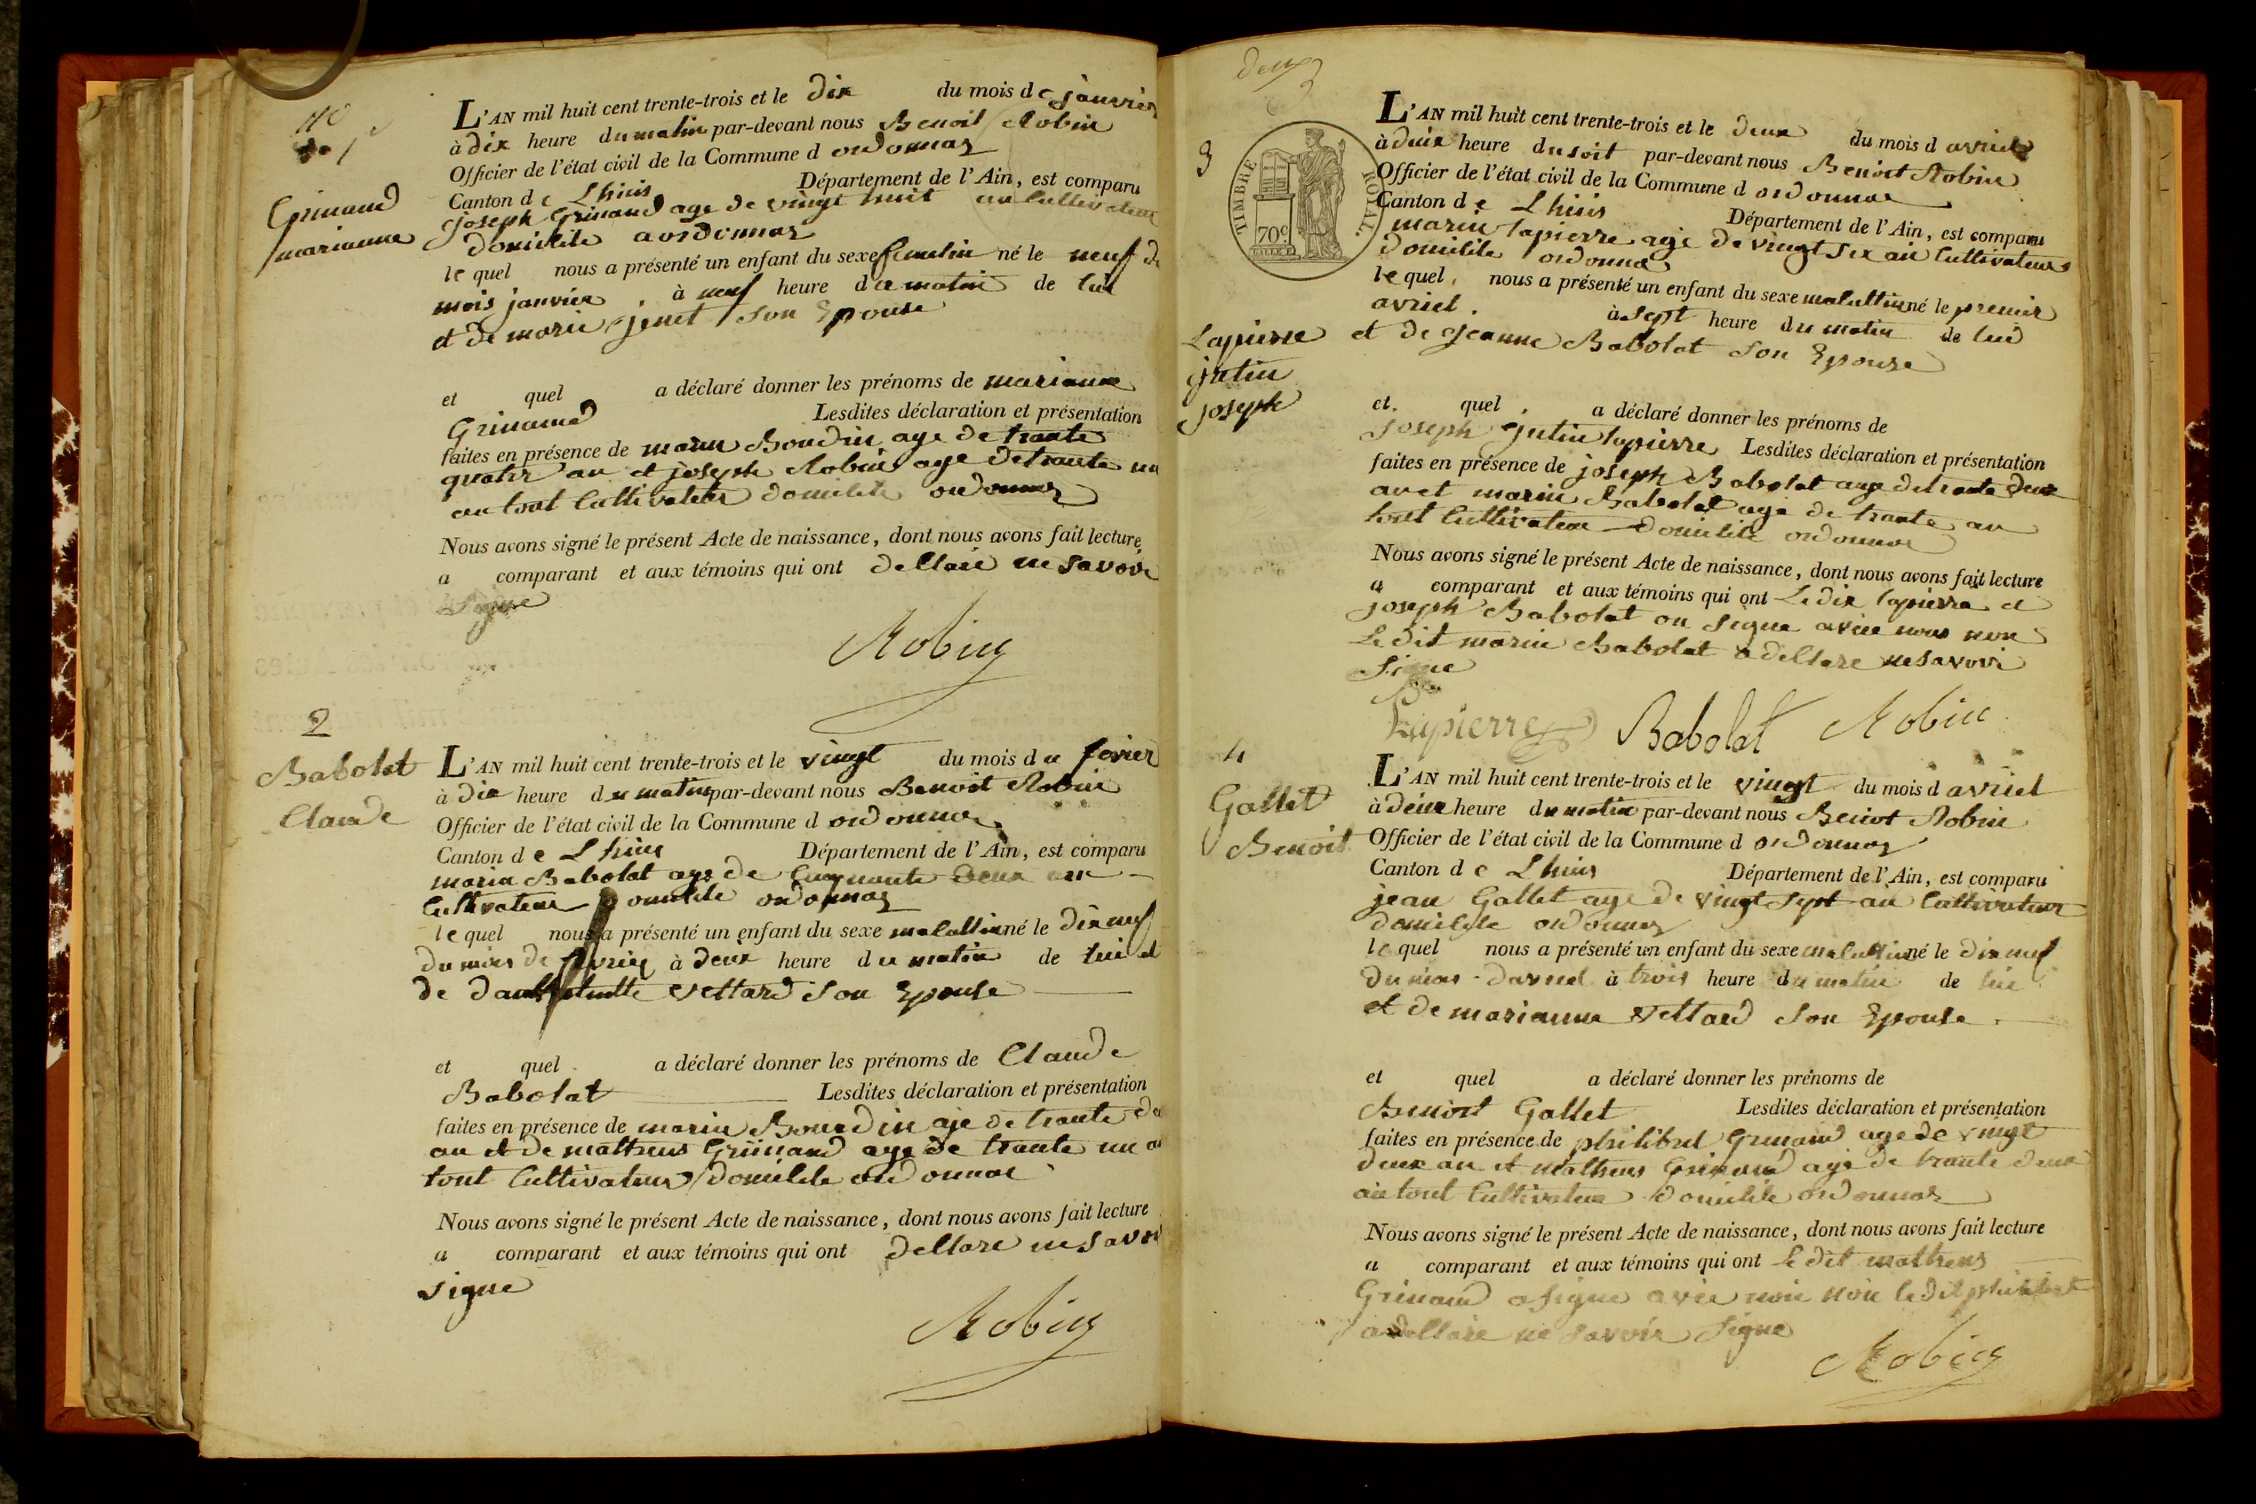 No 1
Grinand
marianne
L'AN mil huit cent trente-trois et le dix du mois de janvier
à dix heure du matin par-devant nous Benoit Robin
Officier de l'état civil de la Commune d ordonnaz
Canton de Lhuis Département de l'Ain, est comparu
joseph Grinand age de vingt huit an Cultivateur
domicilie a ordonnaz
le quel nous a présenté un enfant du sexe femelin né le neuf du
mois janvier à neuf heure du matin de lui
et de marie jenet son Epouse
et quel a déclaré donner les prénoms de marianne
Grinand Lesdites déclaration et présentation
faites en présence de Bourdin age de trante
quatre an et joseph Robin age de trante un
an tout Cultivateur domicilie ordonnaz
Nous avons signé le présent Acte de naissance, dont nous avons fait lecture,
a comparant et aux témoins qui ont dellaré ne savoir
signe
Robin
2
Babolat
Claude
L'AN mil huit cent trente-trois et le vingt du mois du fevrier
à dix heure du matin par-devant nous Benoit Robin
Officier de l'état civil de la Commune d ordonnaz
Canton de Lhuis Département de l'Ain, est comparu
marin Babolat age de cinquante deux an
Cultivateur domicilie ordonnaz
le quel nous a présenté un enfant du sexe né le dixneuf
du mois de fevrier à deux heure du matin de lui et
de vettard son Epouse
et quel a déclaré donner les prénoms de Claude
Babolat Lesdites déclaration et présentation
faites en présence de marin Bourdin aje de trante
an et de matheus Grinand age de trante un an
tout Cultivateur domicilie ordonnaz
Nous avons signé le présent Acte de naissance, dont nous avons fait lecture
a comparant et aux témoins qui ont dellare ne savoir
signe
Robin
deux
TIMBRE ROYAL.
70c
3
Lapierre
jutin
joseph
L'AN mil huit cent trente-trois et le deux du mois d avriel
à deux heure du soit par-devant nous Benoit Robin
Officier de l'état civil de la Commune d ordonnaz
Canton de Lhuis Département de l'Ain, est comparu
marin lapierre age de vingt six an Cultivateur
domicilie ordonnaz
le quel nous a présenté un enfant du sexe né le premier
avriel à sept heure du matin de lui
et de jeanne Babolat son Epouse
et quel a déclaré donner les prénoms de
joseph jutin lapierre Lesdites déclaration et présentation
faites en présence de joseph Babolat age de trante deux
an et marin Babolat age de trante an
tout Cultivateur domicilie ordonnaz
Nous avons signé le présent Acte de naissance, dont nous avons fait lecture
a comparant et aux témoins qui ont Ledit lapierre et
joseph Babolat on signe avec nous non
Ledit marin Babolat a dellare ne savoir
signe
Lapierre Babolat Robin
4
Gallet
Benoit
L'AN mil huit cent trente-trois et le vingt du mois d avriel
à deux heure du matin par-devant nous Benoit Robin
Officier de l'état civil de la Commune d ordonnaz
Canton de Lhuis Département de l'Ain, est comparu
jean Gallet age de vingt sept an Cultivateur
domicilie ordonnaz
le quel nous a présenté un enfant du sexe né le dixneuf
du mois davriel à trois heure du matin de lui
et de marianne vettard son Epouse
et quel a déclaré donner les prénoms de
Benoit Gallet Lesdites déclaration et présentation
faites en présence de philibert Grinand age de vingt
deux an et matheus Grinand age de trante deux
an tout Cultivateur domicilie ordonnaz
Nous avons signé le présent Acte de naissance, dont nous avons fait lecture
a comparant et aux témoins qui ont le dit matheus
Grinand a signe avec nou non ledit philibert
a dellare ne savoir signe
Robin